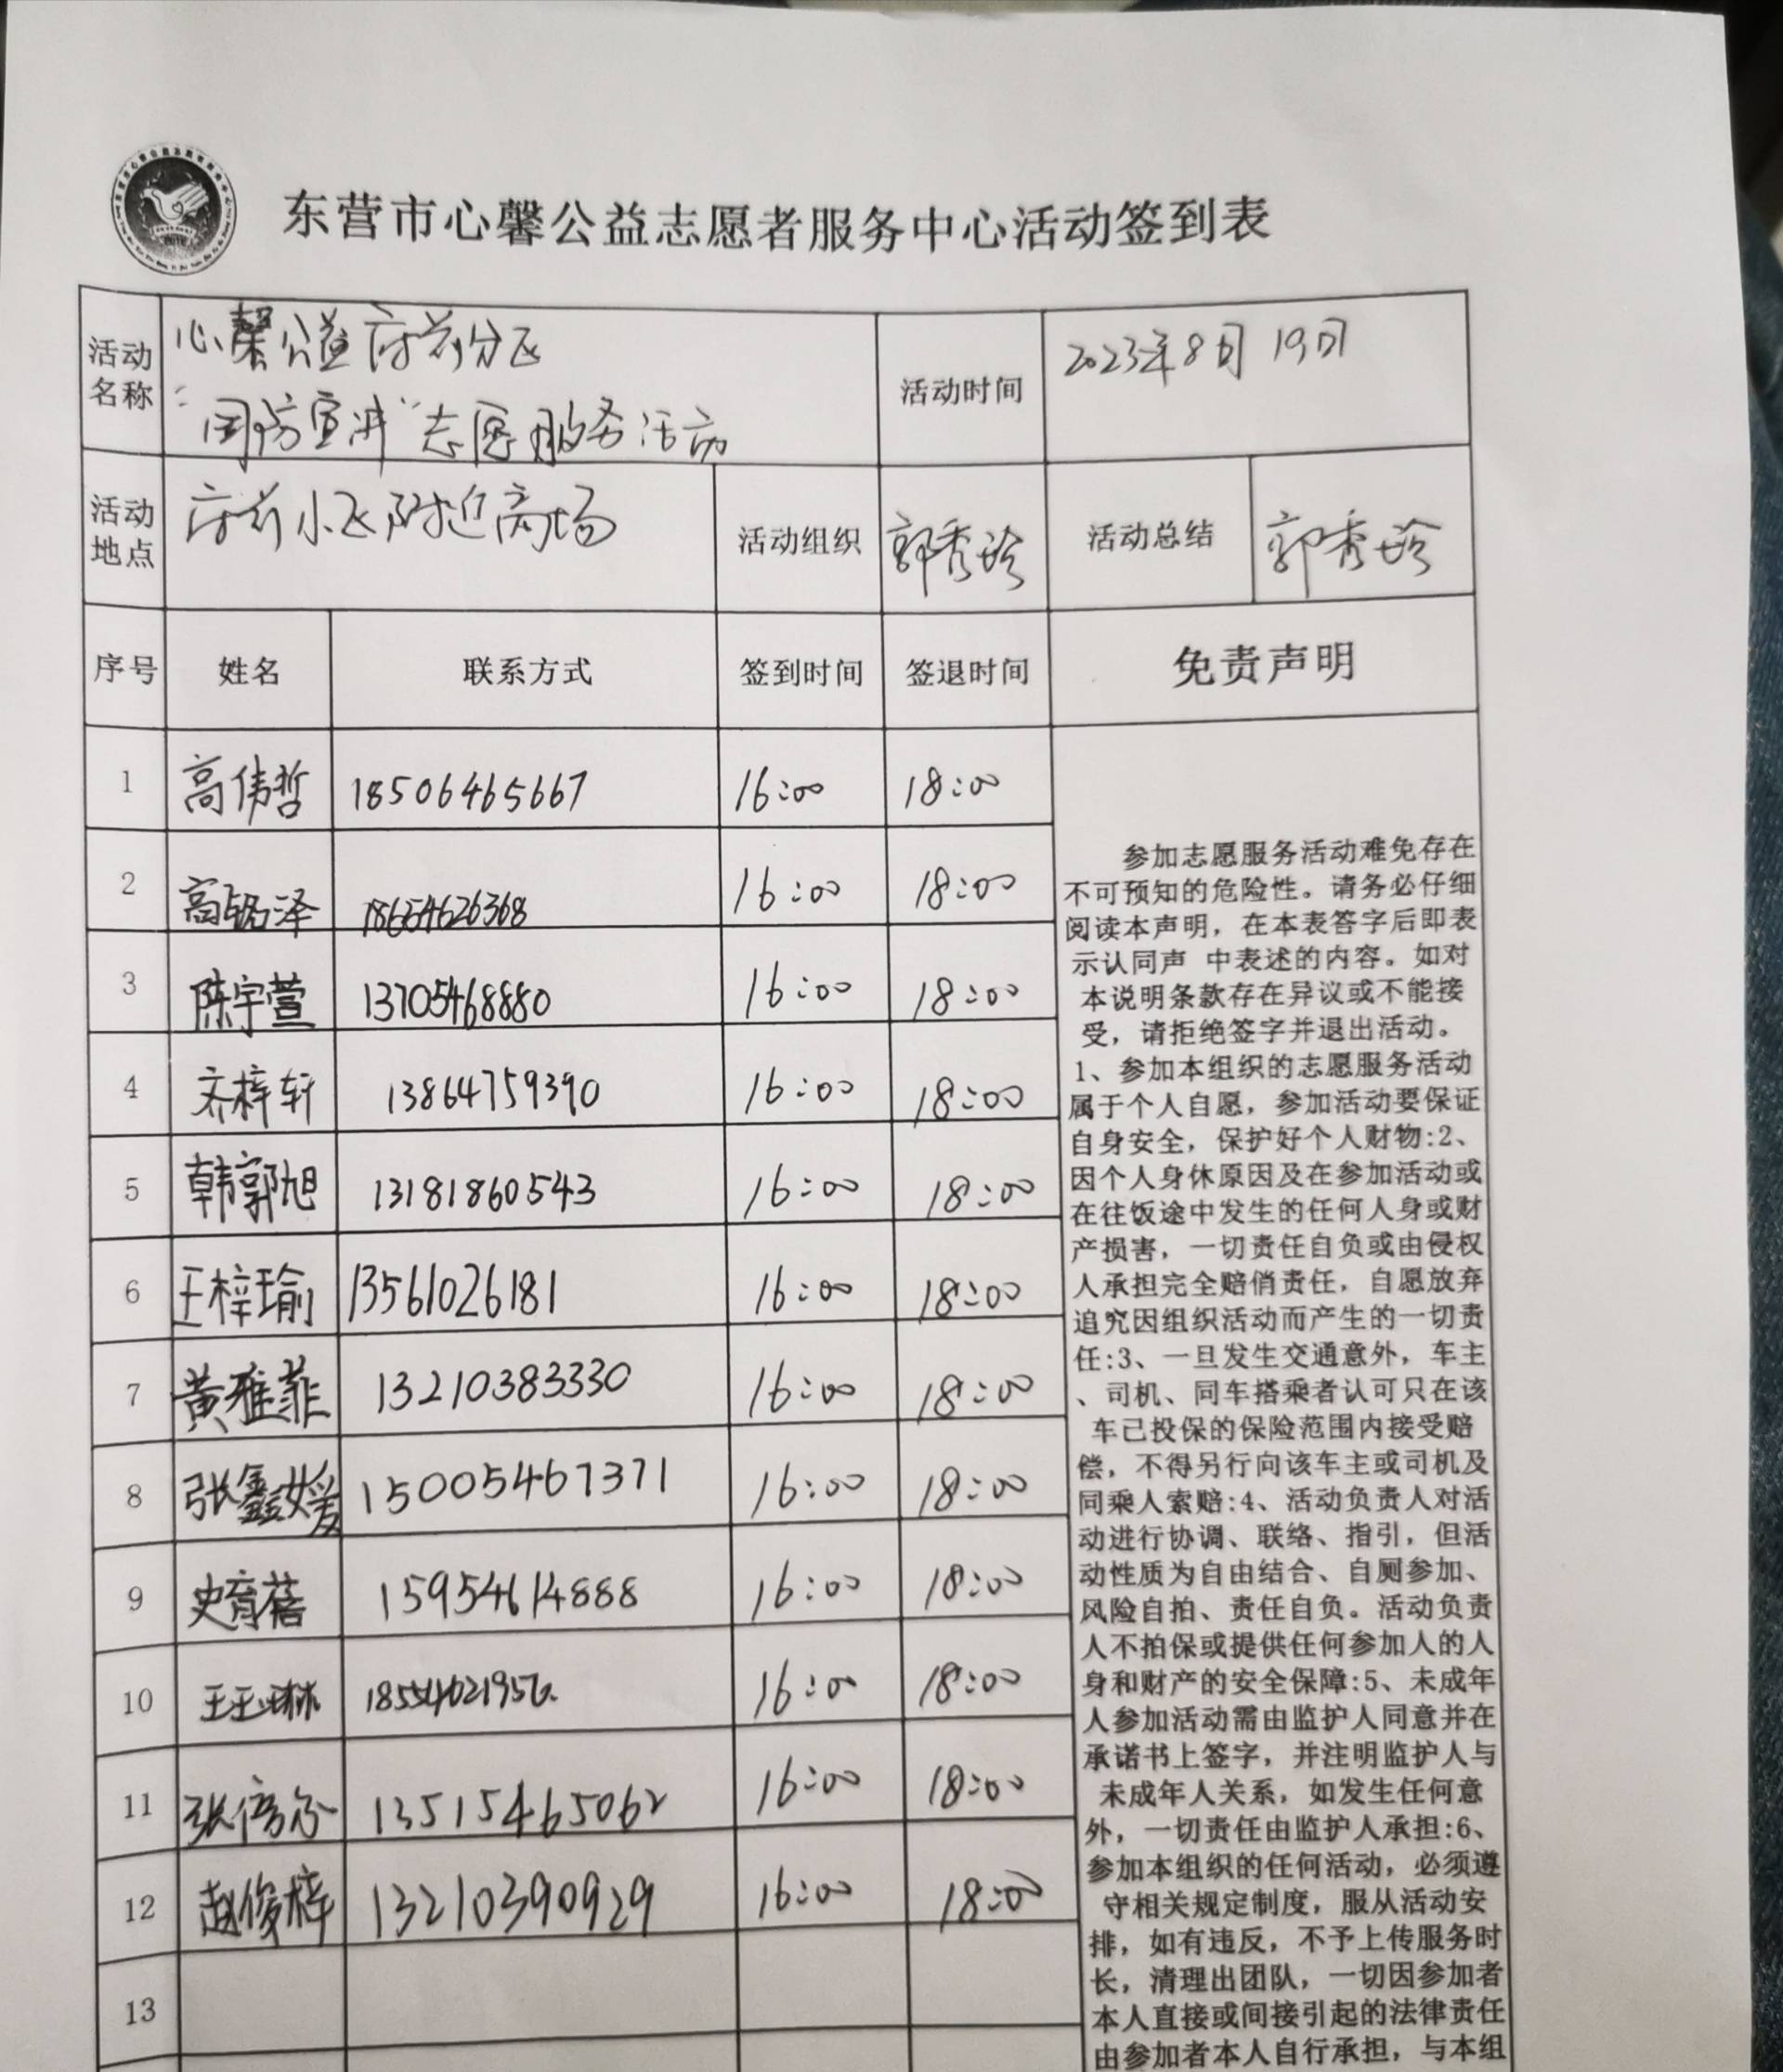 东营市心馨公益志愿者服务中心活动签到表
活动名称
心馨公益府前分区
"国防宣讲"志愿服务活动
活动时间
2023年8月19日
活动地点
府前小区附近商场
活动组织
郭秀玲
活动总结
郭秀玲
序号 姓名 联系方式 签到时间 签退时间 免责声明
1 高伟哲 18506465667 16:00 18:00
2 高铭泽 18654626368 16:00 18:00
3 陈宇萱 13705468880 16:00 18:00
4 齐梓轩 13864759390 16:00 18:00
5 韩郭旭 13181860543 16:00 18:00
6 王梓瑜 13561026181 16:00 18:00
7 黄雅菲 13210383330 16:00 18:00
8 张鑫媛 15005467371 16:00 18:00
9 史育蓓 15954614888 16:00 18:00
10 16:00 18:00
11 13515465062 16:00 18:00
12 赵俊梓 13210390929 16:00 18:00
13
参加志愿服务活动难免存在
不可预知的危险性。请务必仔细
阅读本声明，在本表答字后即表
示认同声 中表述的内容。如对
本说明条款存在异议或不能接
受，请拒绝签字并退出活动。
1、参加本组织的志愿服务活动
属于个人自愿，参加活动要保证
自身安全，保护好个人财物:2、
因个人身休原因及在参加活动或
在往饭途中发生的任何人身或财
产损害，一切责任自负或由侵权
人承担完全赔俏责任，自愿放弃
追究因组织活动而产生的一切责
任:3、一旦发生交通意外，车主
、司机、同车搭乘者认可只在该
车已投保的保险范围内接受赔
偿，不得另行向该车主或司机及
同乘人索赔:4、活动负责人对活
动进行协调、联络、指引，但活
动性质为自由结合、自厕参加、
风险自拍、责任自负。活动负责
人不拍保或提供任何参加人的人
身和财产的安全保障:5、未成年
人参加活动需由监护人同意并在
承诺书上签字，并注明监护人与
未成年人关系，如发生任何意
外，一切责任由监护人承担:6、
参加本组织的任何活动，必须遵
守相关规定制度，服从活动安
排，如有违反，不予上传服务时
长，清理出团队，一切因参加者
本人直接或间接引起的法律责任
由参加者本人自行承担，与本组